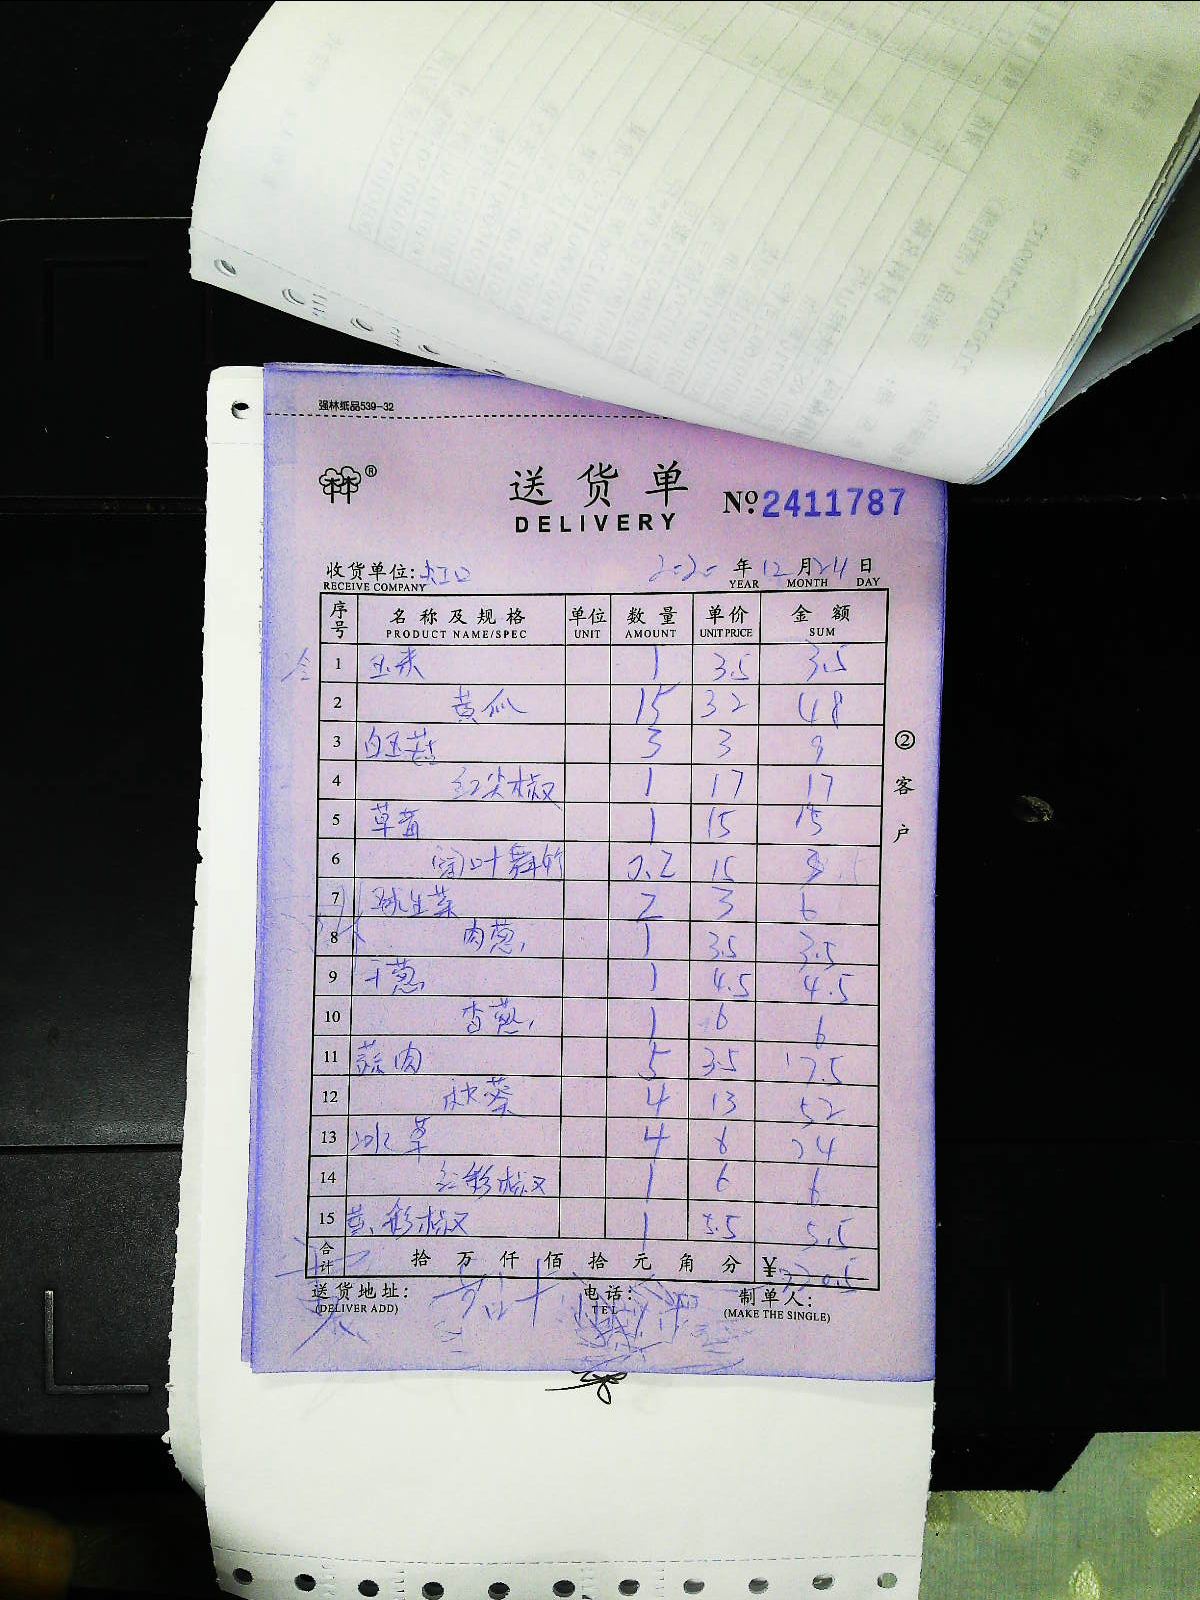 强林纸品539-32
林®
送货单
DELIVERY
№ 2411787
收货单位: 虹口 2020 年 12 月 24 日
RECEIVE COMPANY YEAR MONTH DAY
序号 名称及规格 单位 数量 单价 金额
PRODUCT NAME/SPEC UNIT AMOUNT UNIT PRICE SUM
1 玉米 1 3.5 3.5
2 黄瓜 15 32 48
3 白玉菇 3 3 9
4 红尖椒 1 17 17
5 草菇 1 15 15
6 0.2 15 3
7 球生菜 2 3 6
8 肉葱 1 3.5 3.5
9 干葱 1 4.5 4.5
10 香葱 1 6 6
11 蒜肉 5 3.5 17.5
12 秋葵 4 13 52
13 冰草 4 6 24
14 红彩椒 1 6 6
15 黄彩椒 1 5.5 5.5
合计 拾 万 仟 佰 拾 元 角 分 ¥ 220.5
送货地址: 电话: 制单人:
(DELIVER ADD) TEL (MAKE THE SINGLE)
②客户